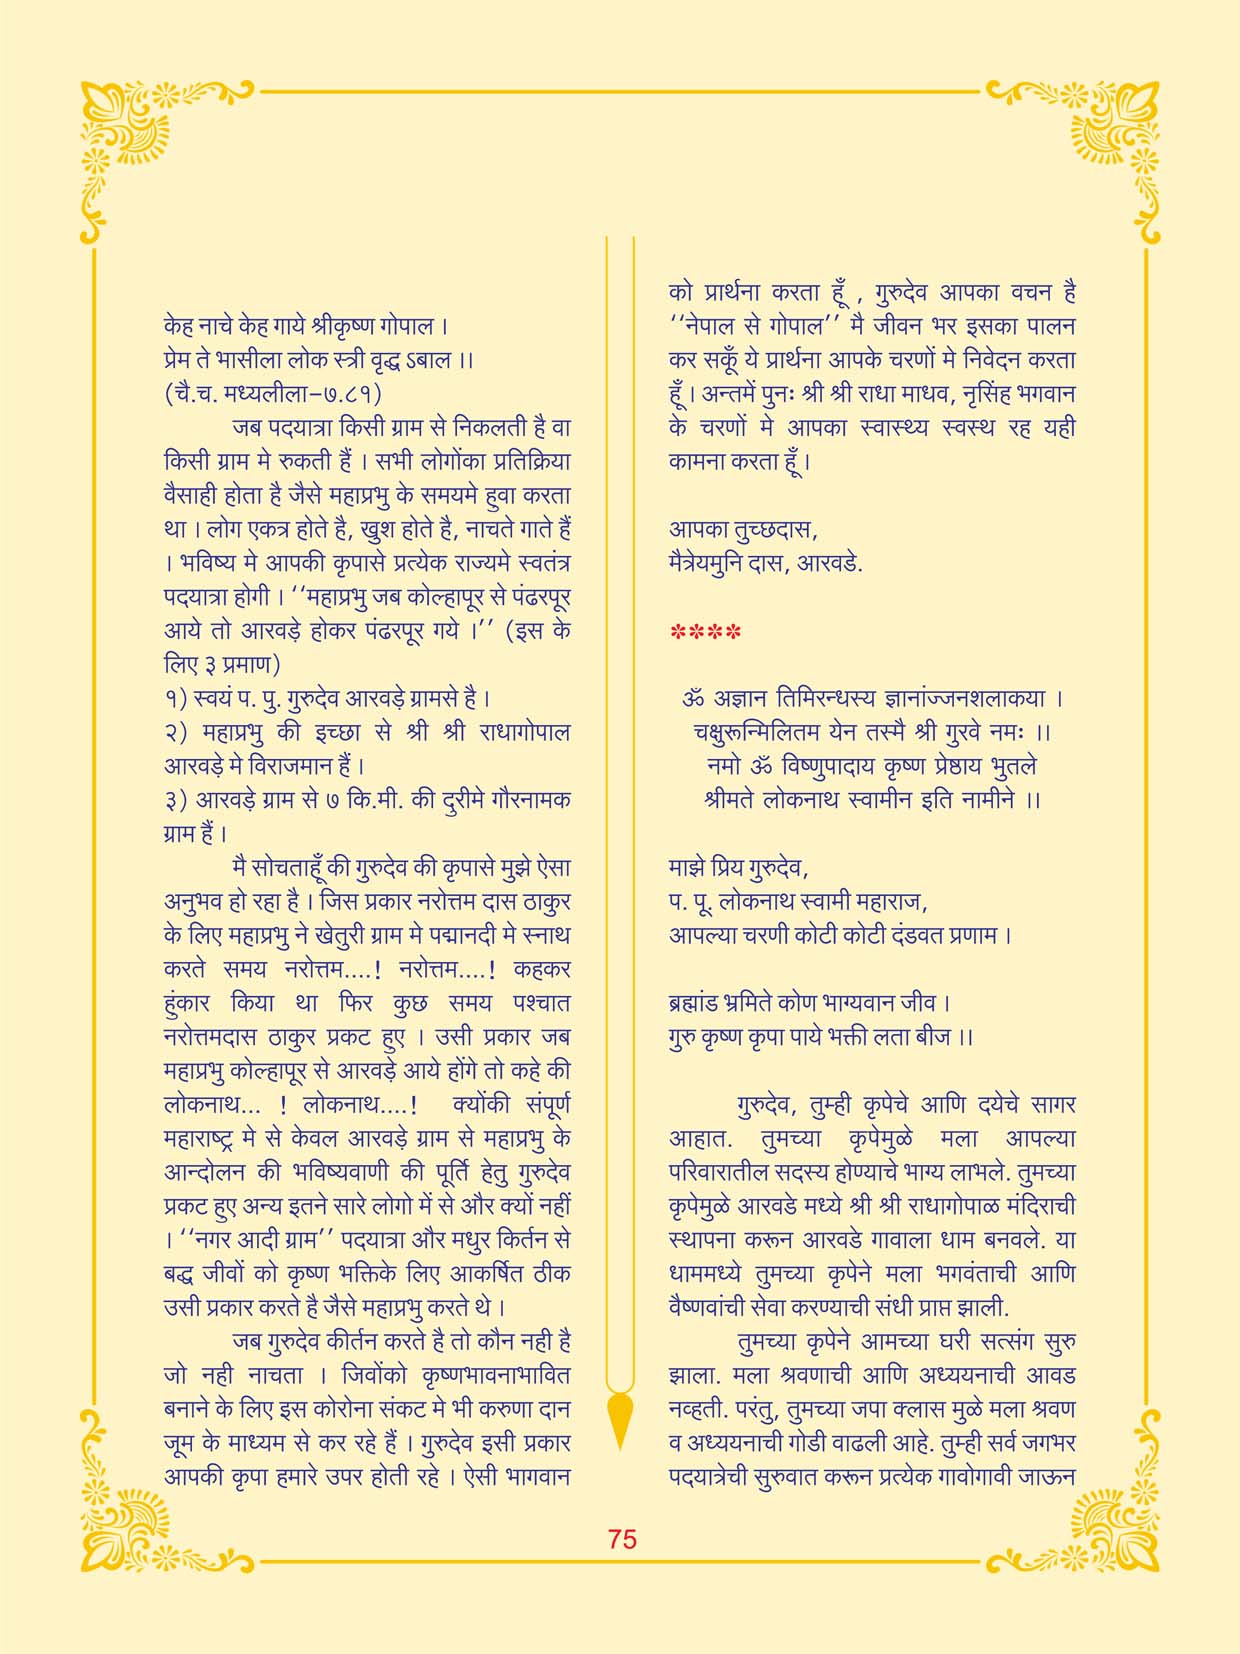 केह नाचे केह गाये श्रीकृष्ण गोपाल ।
प्रेम ते भासीला लोक स्त्री वृद्ध ऽबाल ।।
(चै.च. मध्यलीला–७.८१)
जब पदयात्रा किसी ग्राम से निकलती है वा
किसी ग्राम मे रुकती हैं । सभी लोगोंका प्रतिक्रिया
वैसाही होता है जैसे महाप्रभु के समयमे हुवा करता
था । लोग एकत्र होते है, खुश होते है, नाचते गाते हैं
। भविष्य मे आपकी कृपासे प्रत्येक राज्यमे स्वतंत्र
पदयात्रा होगी । ‘‘महाप्रभु जब कोल्हापूर से पंढरपूर
आये तो आरवड़े होकर पंढरपूर गये ।’’ (इस के
लिए ३ प्रमाण)
१) स्वयं प. पु. गुरुदेव आरवड़े ग्रामसे है ।
२) महाप्रभु की इच्छा से श्री श्री राधागोपाल
आरवड़े मे विराजमान हैं ।
३) आरवड़े ग्राम से ७ कि.मी. की दुरीमे गौरनामक
ग्राम हैं ।
मै सोचताहूँ की गुरुदेव की कृपासे मुझे ऐसा
अनुभव हो रहा है । जिस प्रकार नरोत्तम दास ठाकुर
के लिए महाप्रभु ने खेतुरी ग्राम मे पद्मानदी मे स्नाथ
करते समय नरोत्तम....! नरोत्तम....! कहकर
हुंकार किया था फिर कुछ समय पश्चात
नरोत्तमदास ठाकुर प्रकट हुए । उसी प्रकार जब
महाप्रभु कोल्हापूर से आरवड़े आये होंगे तो कहे की
लोकनाथ... ! लोकनाथ....! क्योंकी संपूर्ण
महाराष्ट्र मे से केवल आरवड़े ग्राम से महाप्रभु के
आन्दोलन की भविष्यवाणी की पूर्ति हेतु गुरुदेव
प्रकट हुए अन्य इतने सारे लोगो में से और क्यों नहीं
। ‘‘नगर आदी ग्राम’’ पदयात्रा और मधुर किर्तन से
बद्ध जीवों को कृष्ण भक्तिके लिए आकर्षित ठीक
उसी प्रकार करते है जैसे महाप्रभु करते थे ।
जब गुरुदेव कीर्तन करते है तो कौन नही है
जो नही नाचता । जिवोंको कृष्णभावनाभावित
बनाने के लिए इस कोरोना संकट मे भी करुणा दान
जूम के माध्यम से कर रहे हैं । गुरुदेव इसी प्रकार
आपकी कृपा हमारे उपर होती रहे । ऐसी भागवान
को प्रार्थना करता हूँ , गुरुदेव आपका वचन है
‘‘नेपाल से गोपाल’’ मै जीवन भर इसका पालन
कर सकूँ ये प्रार्थना आपके चरणों मे निवेदन करता
हूँ । अन्तमें पुनः श्री श्री राधा माधव, नृसिंह भगवान
के चरणों मे आपका स्वास्थ्य स्वस्थ रह यही
कामना करता हूँ ।
आपका तुच्छदास,
मैत्रेयमुनि दास, आरवडे.
****
ॐ अज्ञान तिमिरन्धस्य ज्ञानांज्जनशलाकया ।
चक्षुरून्मिलितम येन तस्मै श्री गुरवे नमः ।।
नमो ॐ विष्णुपादाय कृष्ण प्रेष्ठाय भुतले
श्रीमते लोकनाथ स्वामीन इति नामीने ।।
माझे प्रिय गुरुदेव,
प. पू. लोकनाथ स्वामी महाराज,
आपल्या चरणी कोटी कोटी दंडवत प्रणाम ।
ब्रह्मांड भ्रमिते कोण भाग्यवान जीव ।
गुरु कृष्ण कृपा पाये भक्ती लता बीज ।।
गुरुदेव, तुम्ही कृपेचे आणि दयेचे सागर
आहात. तुमच्या कृपेमुळे मला आपल्या
परिवारातील सदस्य होण्याचे भाग्य लाभले. तुमच्या
कृपेमुळे आरवडे मध्ये श्री श्री राधागोपाळ मंदिराची
स्थापना करून आरवडे गावाला धाम बनवले. या
धाममध्ये तुमच्या कृपेने मला भगवंताची आणि
वैष्णवांची सेवा करण्याची संधी प्राप्त झाली.
तुमच्या कृपेने आमच्या घरी सत्संग सुरु
झाला. मला श्रवणाची आणि अध्ययनाची आवड
नव्हती. परंतु, तुमच्या जपा क्लास मुळे मला श्रवण
व अध्ययनाची गोडी वाढली आहे. तुम्ही सर्व जगभर
पदयात्रेची सुरुवात करून प्रत्येक गावोगावी जाऊन
75